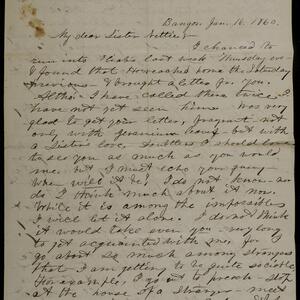 Bangor Jan. 16. 1860.
My dear Sister Nettie,
I chanced to
run into last week Thursday eve
I found that reached home the Saturday
previous. I brought a letter for you.
Altho' I have called there twice I
have not yet seen him. Was very
glad to get your letter, fragrant not
only with geranium leaves but with
a Sister's love. I should love
to see you as much as you would
me, but I must echo your query
When will it be? I do not know nor
do I think much about it now.
While it is among the impossibles
I will let it alone. I do not think
it would take even you very long
to get acquainted with me, for I
go about so much among strangers
that I am getting to be quite sociable
For example, I go to preach, stop
at the house of a stranger, meet